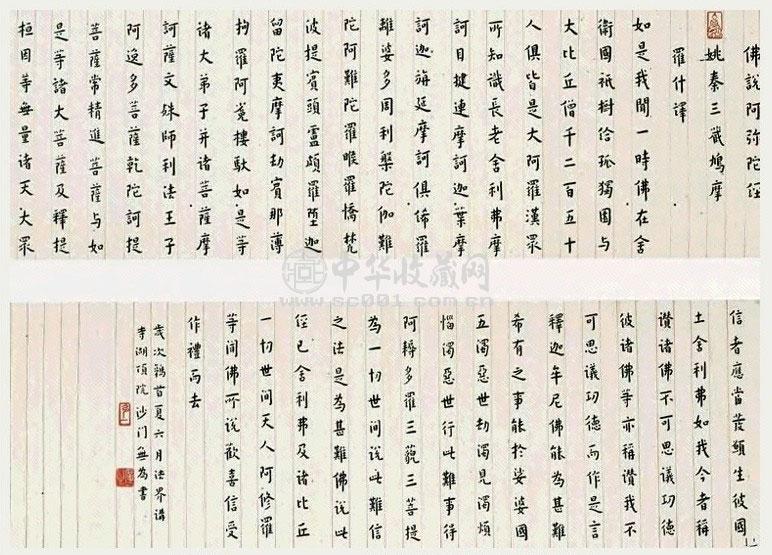 佛說阿弥陀经
姚秦三藏鸠摩
羅什譯
如是我聞一時佛在舍
衛國祇樹给孤獨園与
大比丘僧千二百五十
人俱皆是大阿羅漢眾
所知識長老舍利弗摩
訶目揵連摩訶迦葉摩
訶迦旃延摩訶俱絺羅
離婆多周利槃陀伽難
陀阿難陀羅睺羅憍梵
波提賓頭盧頗羅堕迦
留陀夷摩訶劫賓那薄
拘羅阿㝹樓馱如是等
諸大弟子并諸菩薩摩
訶薩文殊師利法王子
阿逸多菩薩乾陀訶提
菩薩常精進菩薩与如
是等諸大菩薩及釋提
桓因等無量諸天大眾
信者應當發願生彼國
土舍利弗如我今者稱
讚諸佛不可思議功德
彼諸佛等亦稱讚我不
可思議功德而作是言
釋迦牟尼佛能為甚難
希有之事能於娑婆國
五濁惡世劫濁見濁煩
惱濁惡世行此難事得
阿耨多羅三藐三菩提
為一切世间說此難信
之法是為甚難佛說此
经已舍利弗及诸比丘
一切世间天人阿修羅
等闻佛所說歡喜信受
作禮而去
歲次鶉首夏六月法界講
寺湖頂院沙门無為書
中华收藏网
www.sc001.com.cn